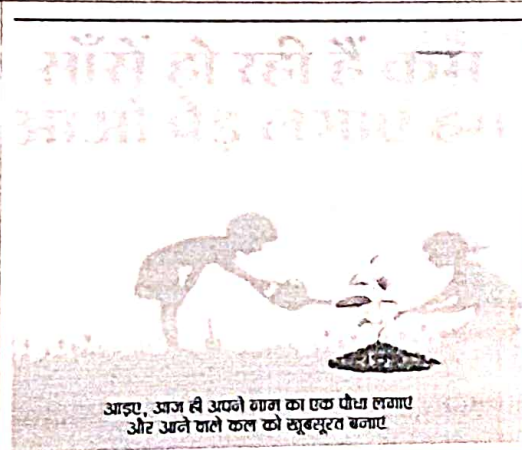 साँसें हो रही हैं कम
आओ पेड़ लगाएं हम
आइए, आज ही अपने नाम का एक पौधा लगाएं
और आने वाले कल को खूबसूरत बनाएं